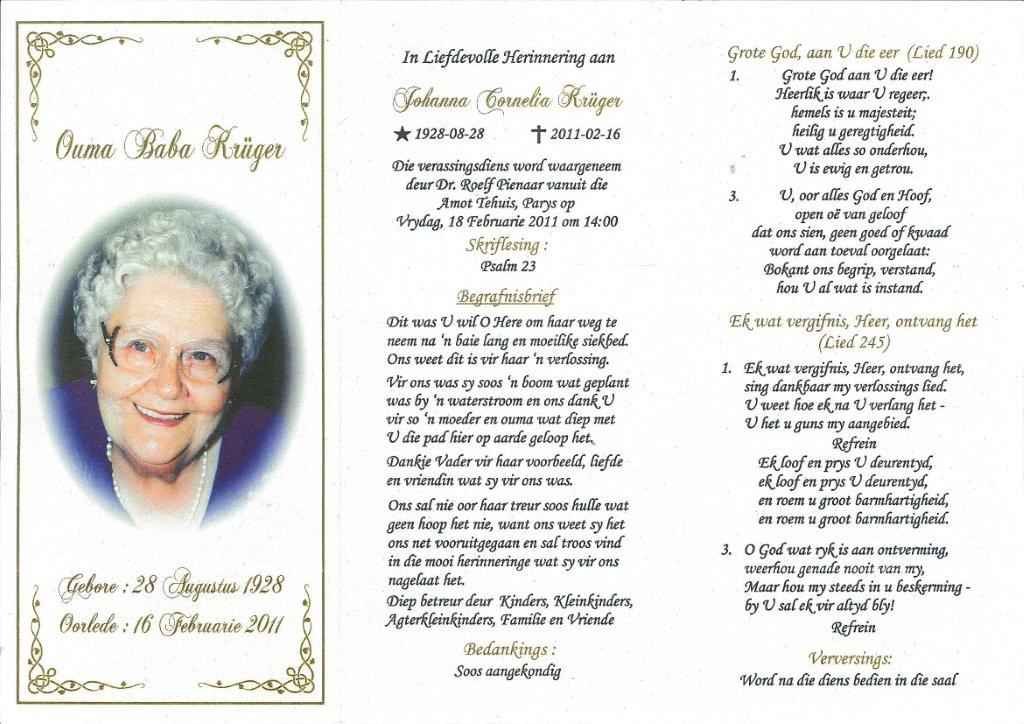 Ouma Baba Krüger
Gebore : 28 Augustus 1928
Oorlede : 16 Februarie 2011
In Liefdevolle Herinnering aan
Johanna Cornelia Krüger
★ 1928-08-28 ✝ 2011-02-16
Die verassingsdiens word waargeneem
deur Dr. Roelf Pienaar vanuit die
Amot Tehuis, Parys op
Vrydag, 18 Februarie 2011 om 14:00
Skriflesing :
Psalm 23
Begrafnisbrief
Dit was U wil O Here om haar weg te
neem na 'n baie lang en moeilike siekbed.
Ons weet dit is vir haar 'n verlossing.
Vir ons was sy soos 'n boom wat geplant
was by 'n waterstroom en ons dank U
vir so 'n moeder en ouma wat diep met
U die pad hier op aarde geloop het.
Dankie Vader vir haar voorbeeld, liefde
en vriendin wat sy vir ons was.
Ons sal nie oor haar treur soos hulle wat
geen hoop het nie, want ons weet sy het
ons net vooruitgegaan en sal troos vind
in die mooi herinneringe wat sy vir ons
nagelaat het.
Diep betreur deur Kinders, Kleinkinders,
Agterkleinkinders, Familie en Vriende
Bedankings :
Soos aangekondig
Grote God, aan U die eer (Lied 190)
1. Grote God aan U die eer!
Heerlik is waar U regeer;.
hemels is u majesteit;
heilig u geregtigheid.
U wat alles so onderhou,
U is ewig en getrou.
3. U, oor alles God en Hoof,
open oë van geloof
dat ons sien, geen goed of kwaad
word aan toeval oorgelaat:
Bokant ons begrip, verstand,
hou U al wat is instand.
Ek wat vergifnis, Heer, ontvang het
(Lied 245)
1. Ek wat vergifnis, Heer, ontvang het,
sing dankbaar my verlossings lied.
U weet hoe ek na U verlang het -
U het u guns my aangebied.
Refrein
Ek loof en prys U deurentyd,
ek loof en prys U deurentyd,
en roem u groot barmhartigheid,
en roem u groot barmhartigheid.
3. O God wat ryk is aan ontverming,
weerhou genade nooit van my,
Maar hou my steeds in u beskerming -
by U sal ek vir altyd bly!
Refrein
Verversings:
Word na die diens bedien in die saal